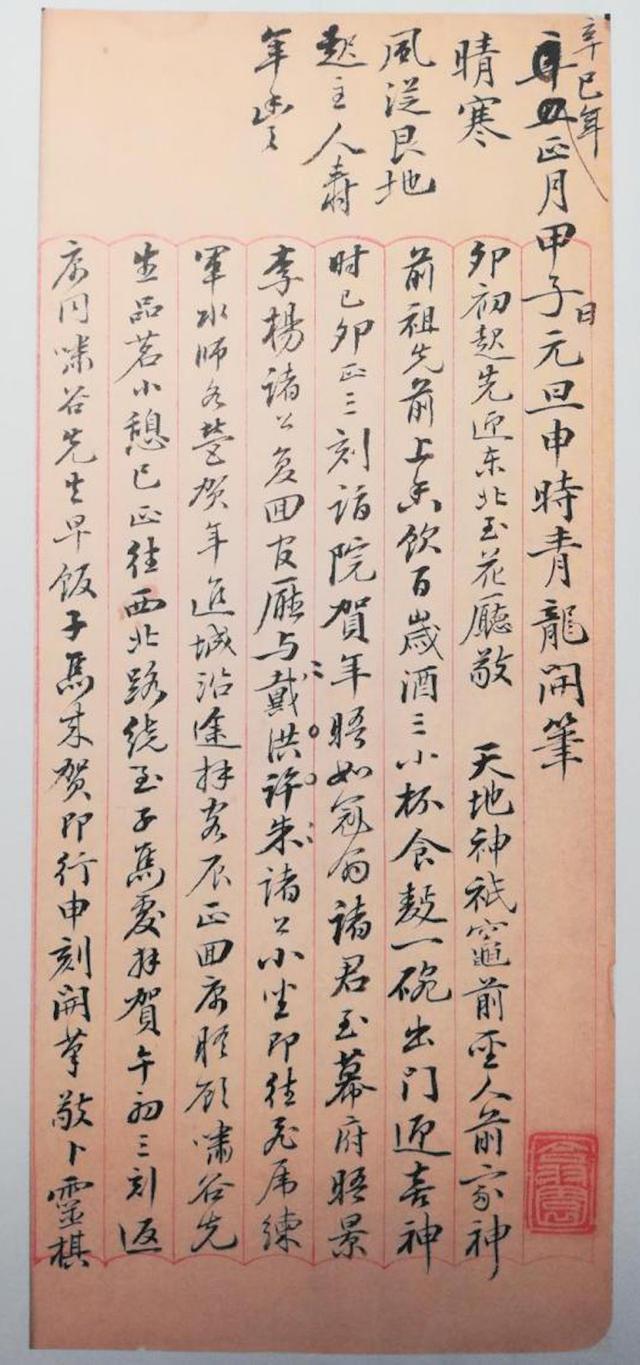 辛巳年
正月甲子日元旦申時青龍開筆
晴寒
風從艮地
起主人壽
年豐
卯初起先迎东北玉花廳敬 天地神祇竈前聖人前家神
前祖先前上香飲百歲酒三小杯食麪一碗出门迎喜神
时已卯正三刻詣院賀年晤如冠翁諸君玉幕府晤景
李楊諸公复回官廳与戴洪許朱諸公小坐即往飛虎練
軍水师各營贺年進城沿途拜客辰正回寓晤顾嘯谷先
生品茗小憩巳正往西北路绕至子馬處拜賀午初三刻返
寓同嘯谷先生早饭子馬来贺即行申刻開筆敬卜靈棋